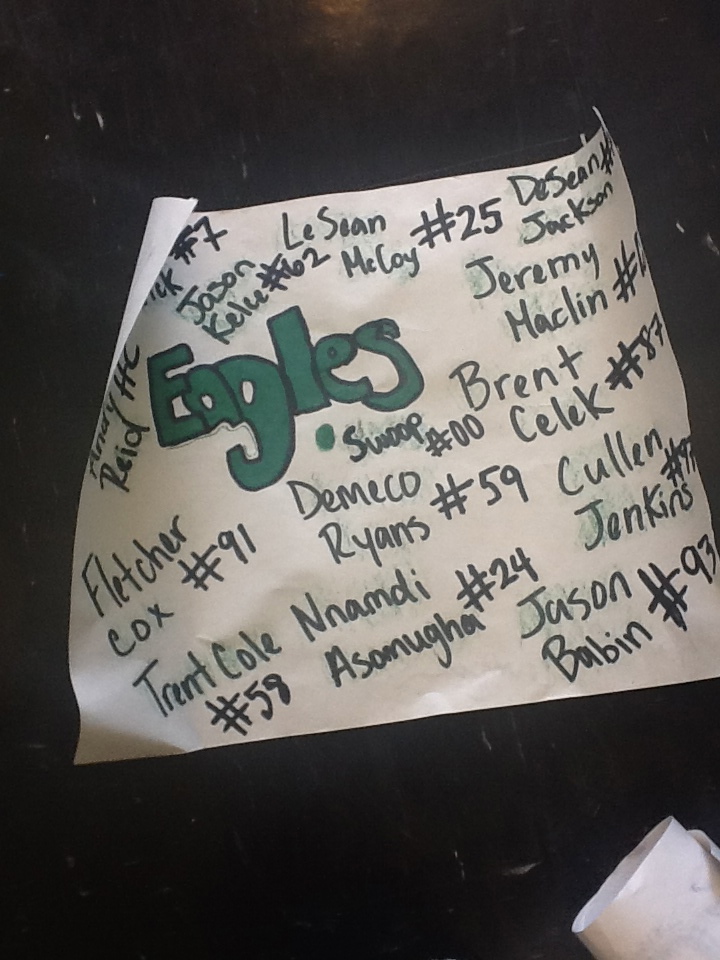 #7
Jason
Kelce #62
LeSean
McCoy #25
DeSean
Jackson
Jeremy
Maclin
Eagles
Swoop
#00
Brent
Celek #87
Andy HC
Reid
Demeco
Ryans #59
Cullen
Jenkins #97
Fletcher
Cox #91
Nnamdi
Asomugha #24
Jason
Babin #93
Trent Cole
#58